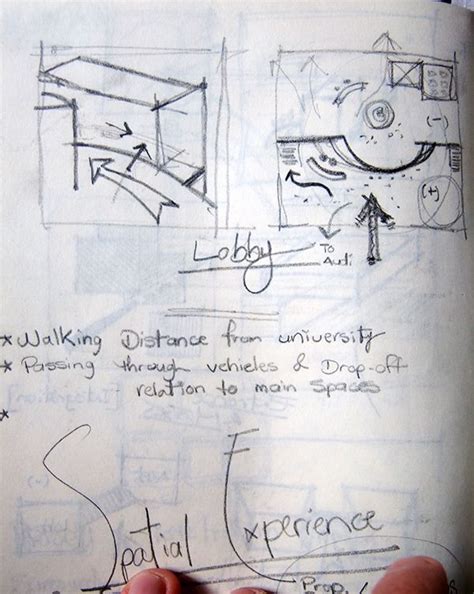 (-)
(+)
To
Audi
Lobby
* Walking Distance from university
* Passing through vehicles & Drop-off
relation to main spaces
*
Spatial Experience
Prop.